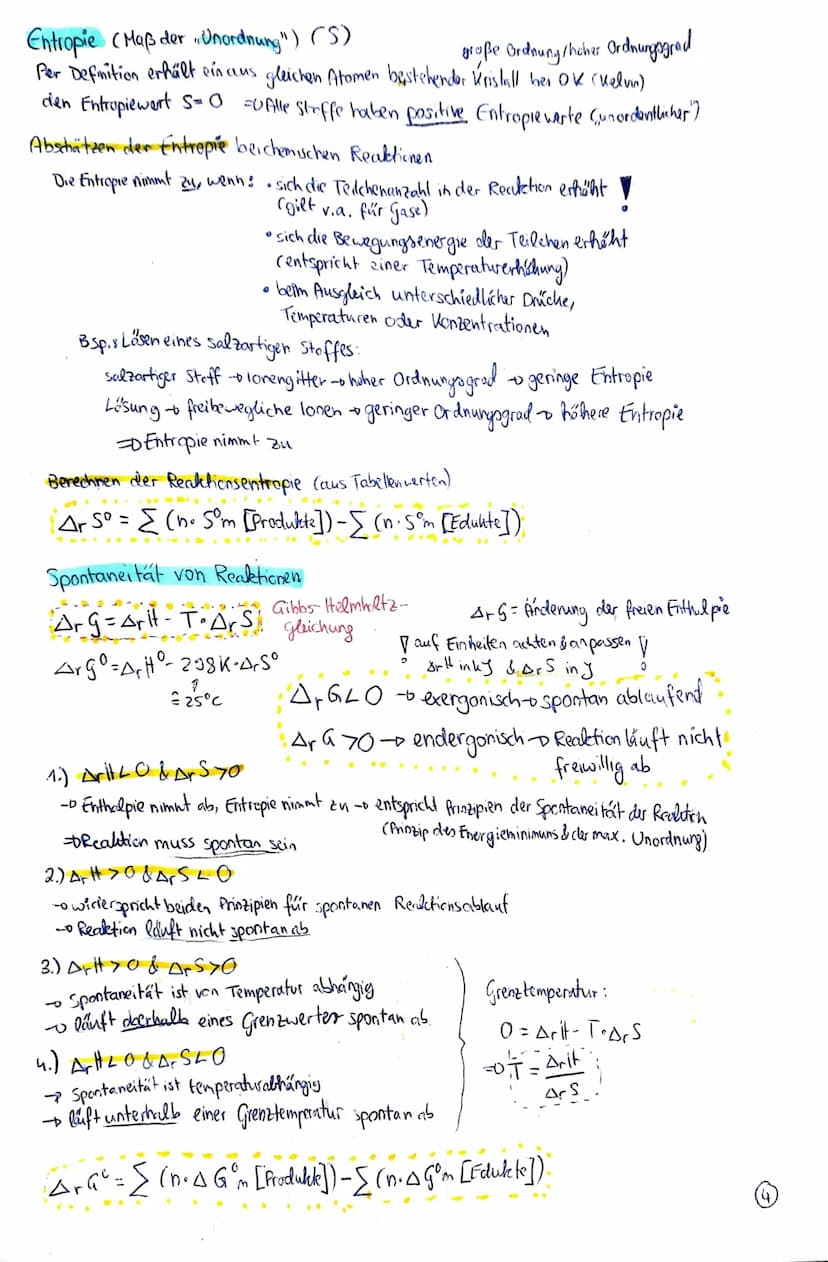 Entropie (Maß der „Unordnung") (S)
große Ordnung/hoher Ordnungsgrad
Per Definition erhält ein aus gleichen Atomen bestehender Kristall bei 0K (Kelvin)
den Entropiewert S=0 => Alle Stoffe haben positive Entropiewerte („unordentlicher")
Abschätzen der Entropie bei chemischen Reaktionen
Die Entropie nimmt zu, wenn: • sich die Teilchenanzahl in der Reaktion erhöht !
(gilt v.a. für Gase)
• sich die Bewegungsenergie der Teilchen erhöht
(entspricht einer Temperaturerhöhung)
• beim Ausgleich unterschiedlicher Drücke,
Temperaturen oder Konzentrationen
Bsp.: Lösen eines salzartigen Stoffes:
salzartiger Stoff → Ionengitter → hoher Ordnungsgrad → geringe Entropie
Lösung → freibewegliche Ionen → geringer Ordnungsgrad → höhere Entropie
=> Entropie nimmt zu
Berechnen der Reaktionsentropie (aus Tabellenwerten)
ΔrS⁰ = Σ (n · S⁰m [Produkte]) - Σ (n · S⁰m [Edukte])
Spontaneität von Reaktionen
ΔrG = ΔrH - T · ΔrS
Gibbs-Helmholtz-
gleichung
ΔrG = Änderung der freien Enthalpie
! auf Einheiten achten & anpassen !
ΔrH in kJ & ΔrS in J
ΔrG⁰ = ΔrH⁰ - 298K · ΔrS⁰
≙ 25°C
ΔrG < 0 → exergonisch → spontan ablaufend
ΔrG > 0 → endergonisch → Reaktion läuft nicht
freiwillig ab
1.) ΔrH < 0 & ΔrS > 0
→ Enthalpie nimmt ab, Entropie nimmt zu → entspricht Prinzipien der Spontaneität der Reaktion
(Prinzip des Energieminimums & der max. Unordnung)
=> Reaktion muss spontan sein
2.) ΔrH > 0 & ΔrS < 0
→ widerspricht beiden Prinzipien für spontanen Reaktionsablauf
→ Reaktion läuft nicht spontan ab
3.) ΔrH > 0 & ΔrS > 0
→ Spontaneität ist von Temperatur abhängig
→ läuft oberhalb eines Grenzwertes spontan ab
4.) ΔrH < 0 & ΔrS < 0
→ Spontaneität ist temperaturabhängig
→ läuft unterhalb einer Grenztemperatur spontan ab
Grenztemperatur:
0 = ΔrH - T · ΔrS
=> T = ΔrH / ΔrS
ΔrG⁰ = Σ (n · ΔG⁰m [Produkte]) - Σ (n · ΔG⁰m [Edukte])
4